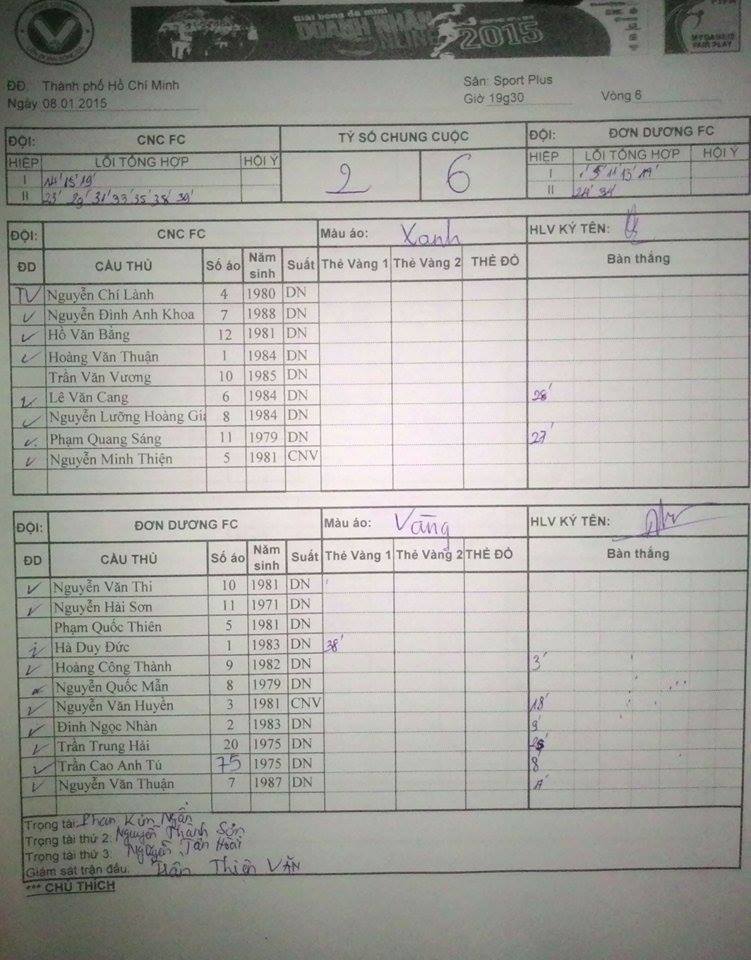 Giải bóng đá mini
DOANH NHÂN
2015
FAIR PLAY
ĐĐ: Thành phố Hồ Chí Minh
Sân: Sport Plus
Ngày 08.01.2015
Giờ 19g30
Vòng 6
ĐỘI: CNC FC TỶ SỐ CHUNG CUỘC ĐỘI: ĐƠN DƯƠNG FC
HIỆP LỖI TỔNG HỢP HỘI Ý 2 6 HIỆP LỖI TỔNG HỢP HỘI Ý
I 14' 15' 19' I 11' 13' 19'
II 23' 29' 31' 33' 35' 38' 39' II 24' 34'
ĐỘI: CNC FC Màu áo: Xanh HLV KÝ TÊN:
ĐD CẦU THỦ Số áo Năm sinh Suất Thẻ Vàng 1 Thẻ Vàng 2 THẺ ĐỎ Bàn thắng
TV Nguyễn Chí Lành 4 1980 DN
Nguyễn Đình Anh Khoa 7 1988 DN
Hồ Văn Bằng 12 1981 DN
Hoàng Văn Thuận 1 1984 DN
Trần Văn Vương 10 1985 DN
Lê Văn Cang 6 1984 DN 28'
Nguyễn Lưỡng Hoàng Gi 8 1984 DN
Phạm Quang Sáng 11 1979 DN 27'
Nguyễn Minh Thiện 5 1981 CNV
ĐỘI: ĐƠN DƯƠNG FC Màu áo: Vàng HLV KÝ TÊN:
ĐD CẦU THỦ Số áo Năm sinh Suất Thẻ Vàng 1 Thẻ Vàng 2 THẺ ĐỎ Bàn thắng
Nguyễn Văn Thi 10 1981 DN
Nguyễn Hải Sơn 11 1971 DN
Phạm Quốc Thiên 5 1981 DN
Hà Duy Đức 1 1983 DN 38'
Hoàng Công Thành 9 1982 DN 3'
Nguyễn Quốc Mẫn 8 1979 DN
Nguyễn Văn Huyền 3 1981 CNV 18'
Đinh Ngọc Nhàn 2 1983 DN 9'
Trần Trung Hải 20 1975 DN
Trần Cao Anh Tú 75 1975 DN 8'
Nguyễn Văn Thuận 7 1987 DN
Trọng tài: Phan Kim Ngân
Trọng tài thứ 2: Nguyễn Thanh Sơn
Trọng tài thứ 3: Nguyễn Tấn Hoài
Giám sát trận đấu: Trần Thiện Văn
*** CHÚ THÍCH